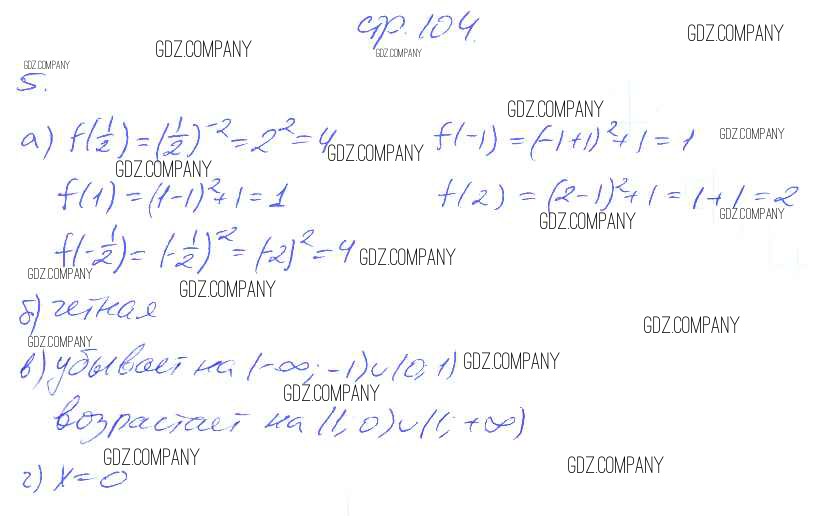 стр. 104.
GDZ.COMPANY GDZ.COMPANY GDZ.COMPANY
GDZ.COMPANY
5.
GDZ.COMPANY
а) f(1/2) = (1/2)^-2 = 2^2 = 4 f(-1) = (-1+1)^2 + 1 = 1 GDZ.COMPANY
GDZ.COMPANY GDZ.COMPANY
f(1) = (1-1)^2 + 1 = 1 f(2) = (2-1)^2 + 1 = 1 + 1 = 2
GDZ.COMPANY GDZ.COMPANY
f(-1/2) = (-1/2)^-2 = (-2)^2 = 4 GDZ.COMPANY
GDZ.COMPANY
GDZ.COMPANY
б) четная
GDZ.COMPANY
GDZ.COMPANY
в) убывает на (-∞; -1)∪(0; 1) GDZ.COMPANY
GDZ.COMPANY
возрастает на (1; 0)∪(1; +∞)
GDZ.COMPANY GDZ.COMPANY
г) x = 0